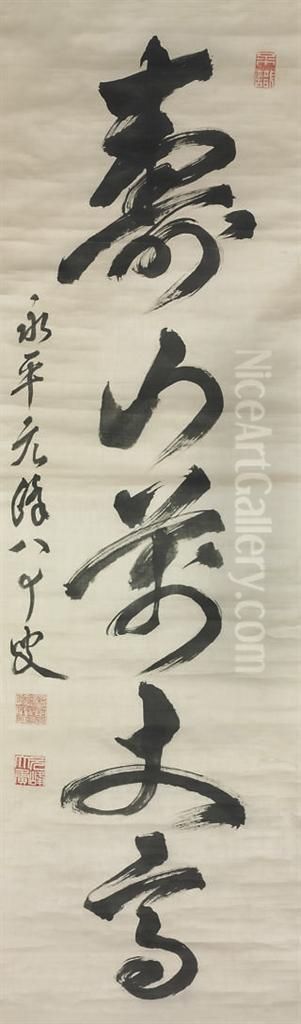 壽山萬丈高
永平元峰八十叟
NiceArtGallery.com